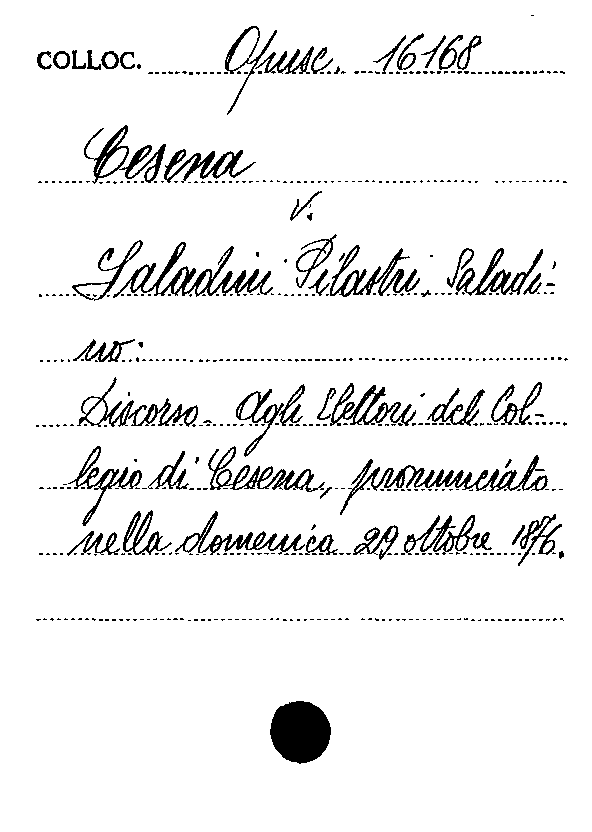 COLLOC. Opusc. 16168
Cesena
v.
Saladini Pilastri, Saladi-
no:
Discorso agli Elettori del Col-
legio di Cesena, pronunciato
nella domenica 29 ottobre 1876.